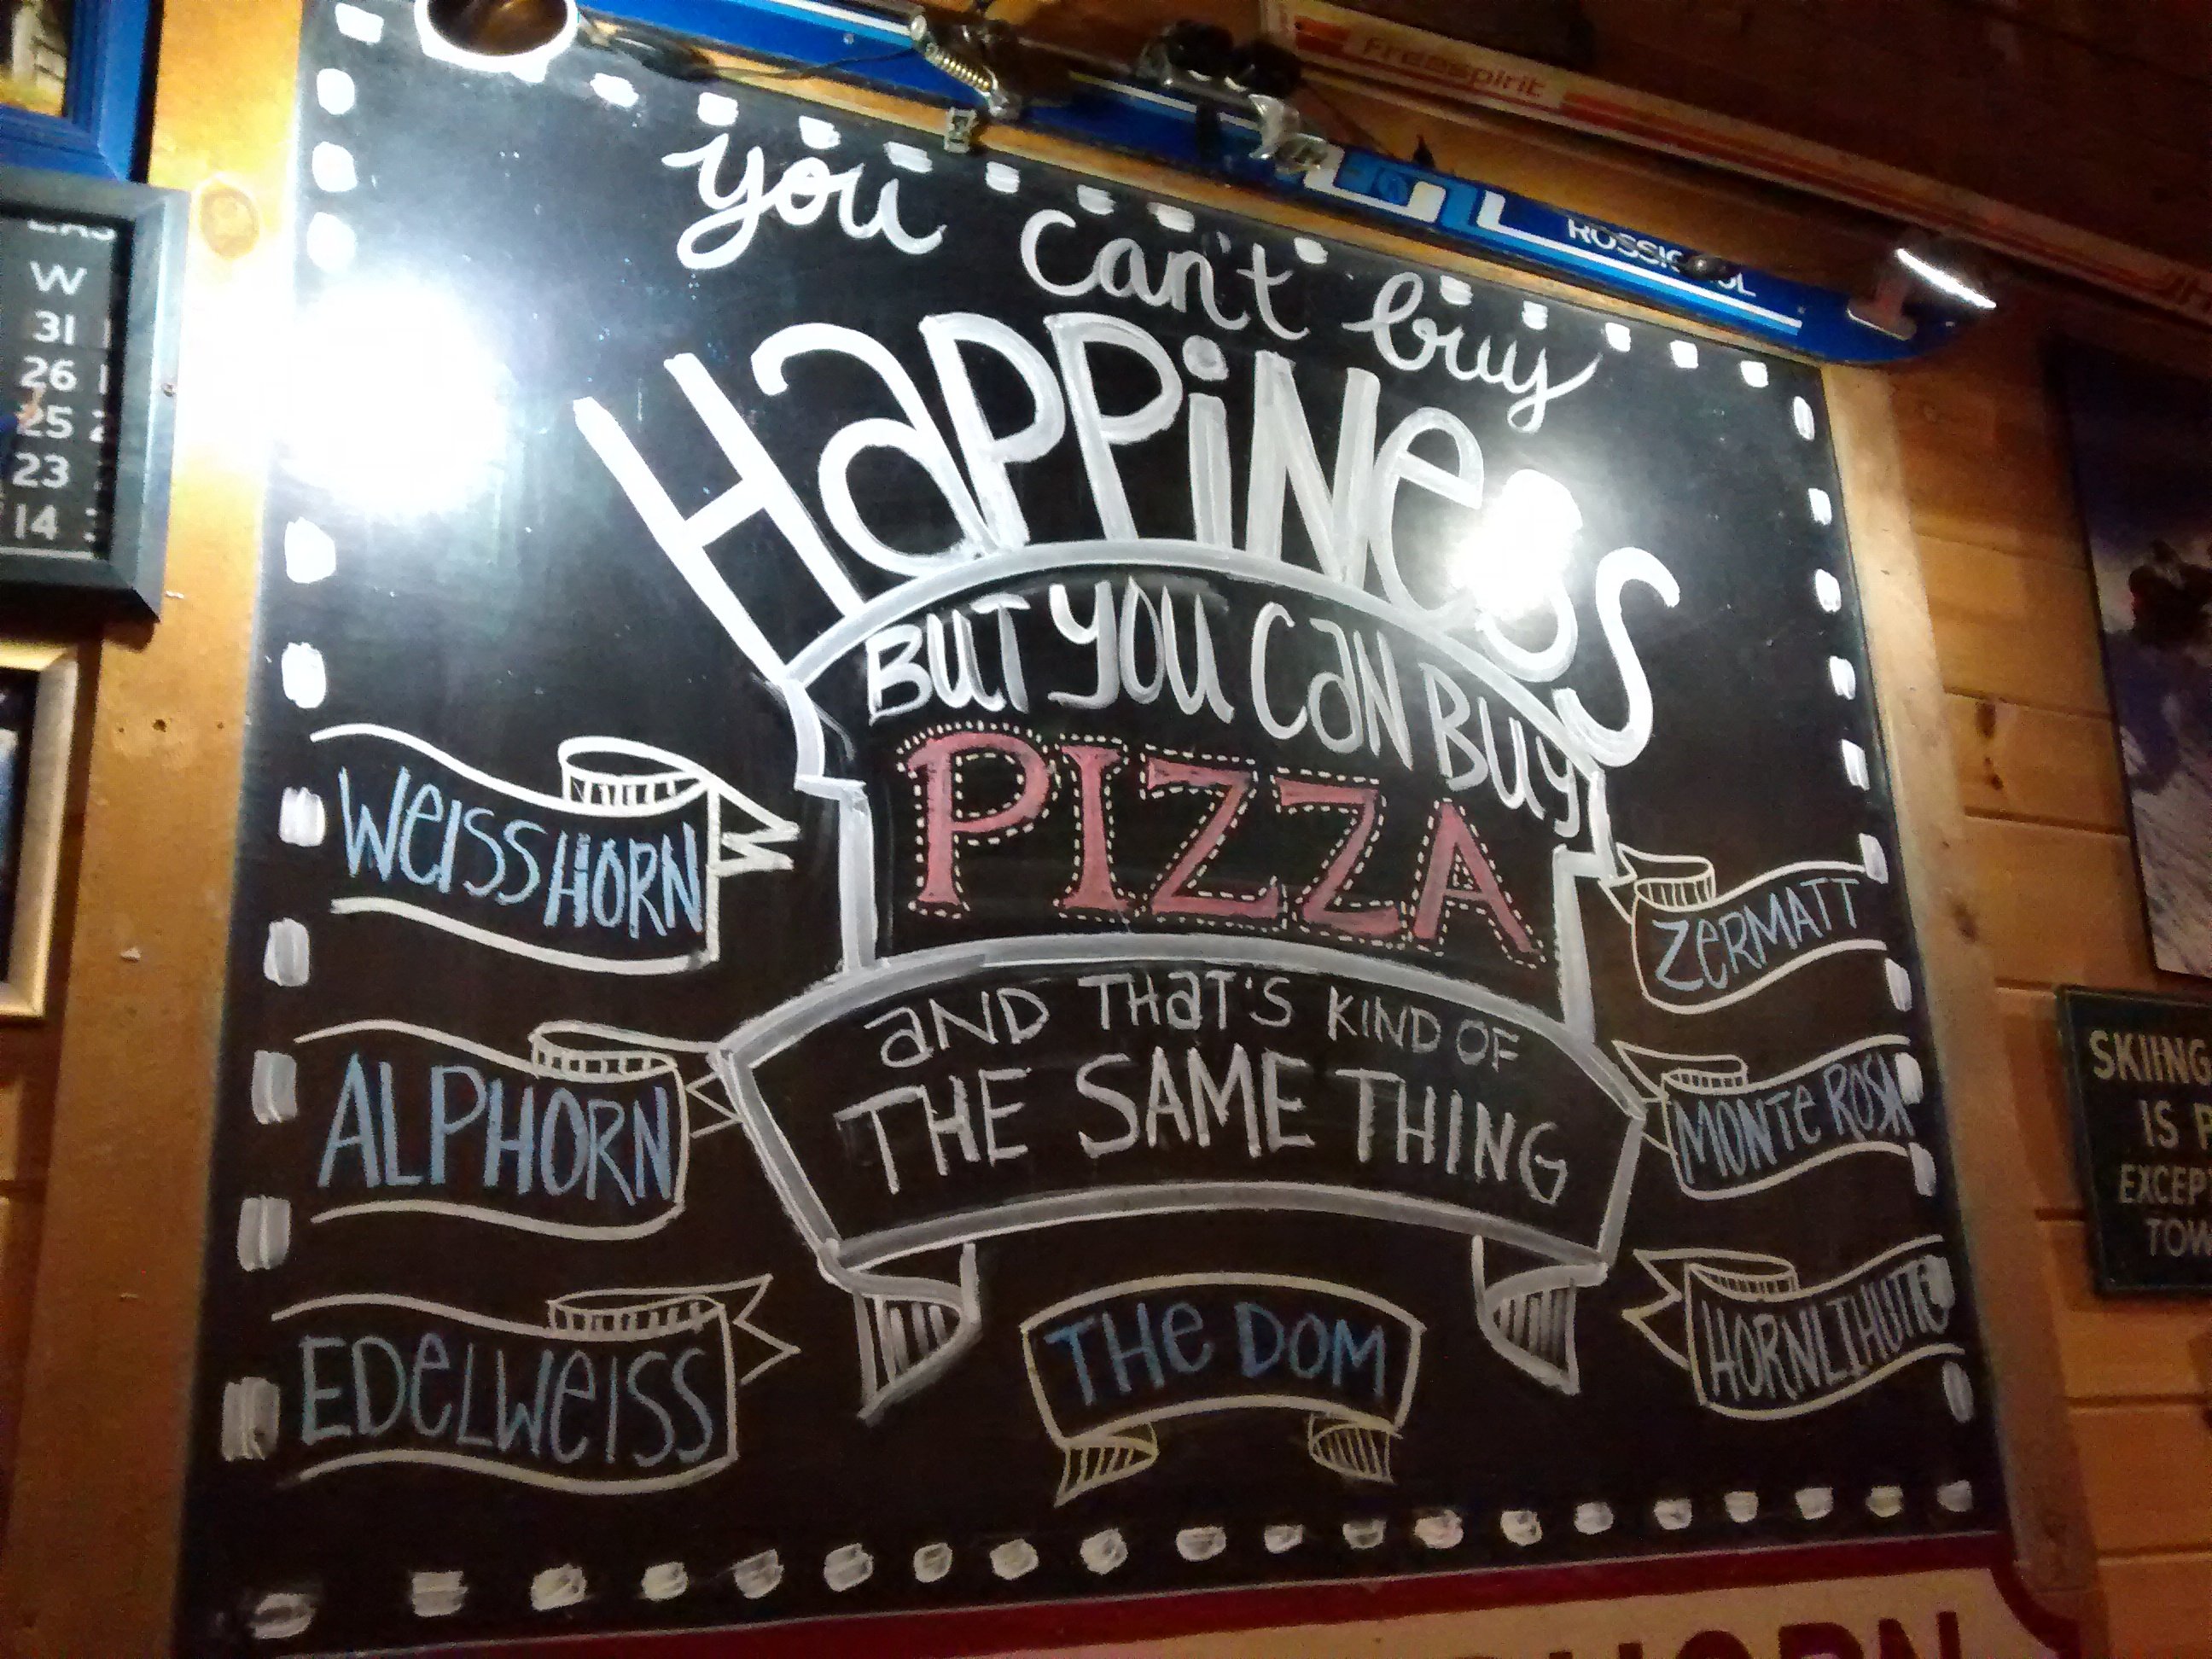 Freespirit
ROSSIGNOL
W
31
26
25
23
14
you can't buy
HaPPiNess
BUT YOU CaN BUY
PIZZA
aND THaT'S KIND OF
THE SAME THING
WeISSHORN
ALPHORN
EDeLWeISS
THe DOM
ZeRMATT
MONTe ROSA
SKIING
IS
EXCEP
TOW